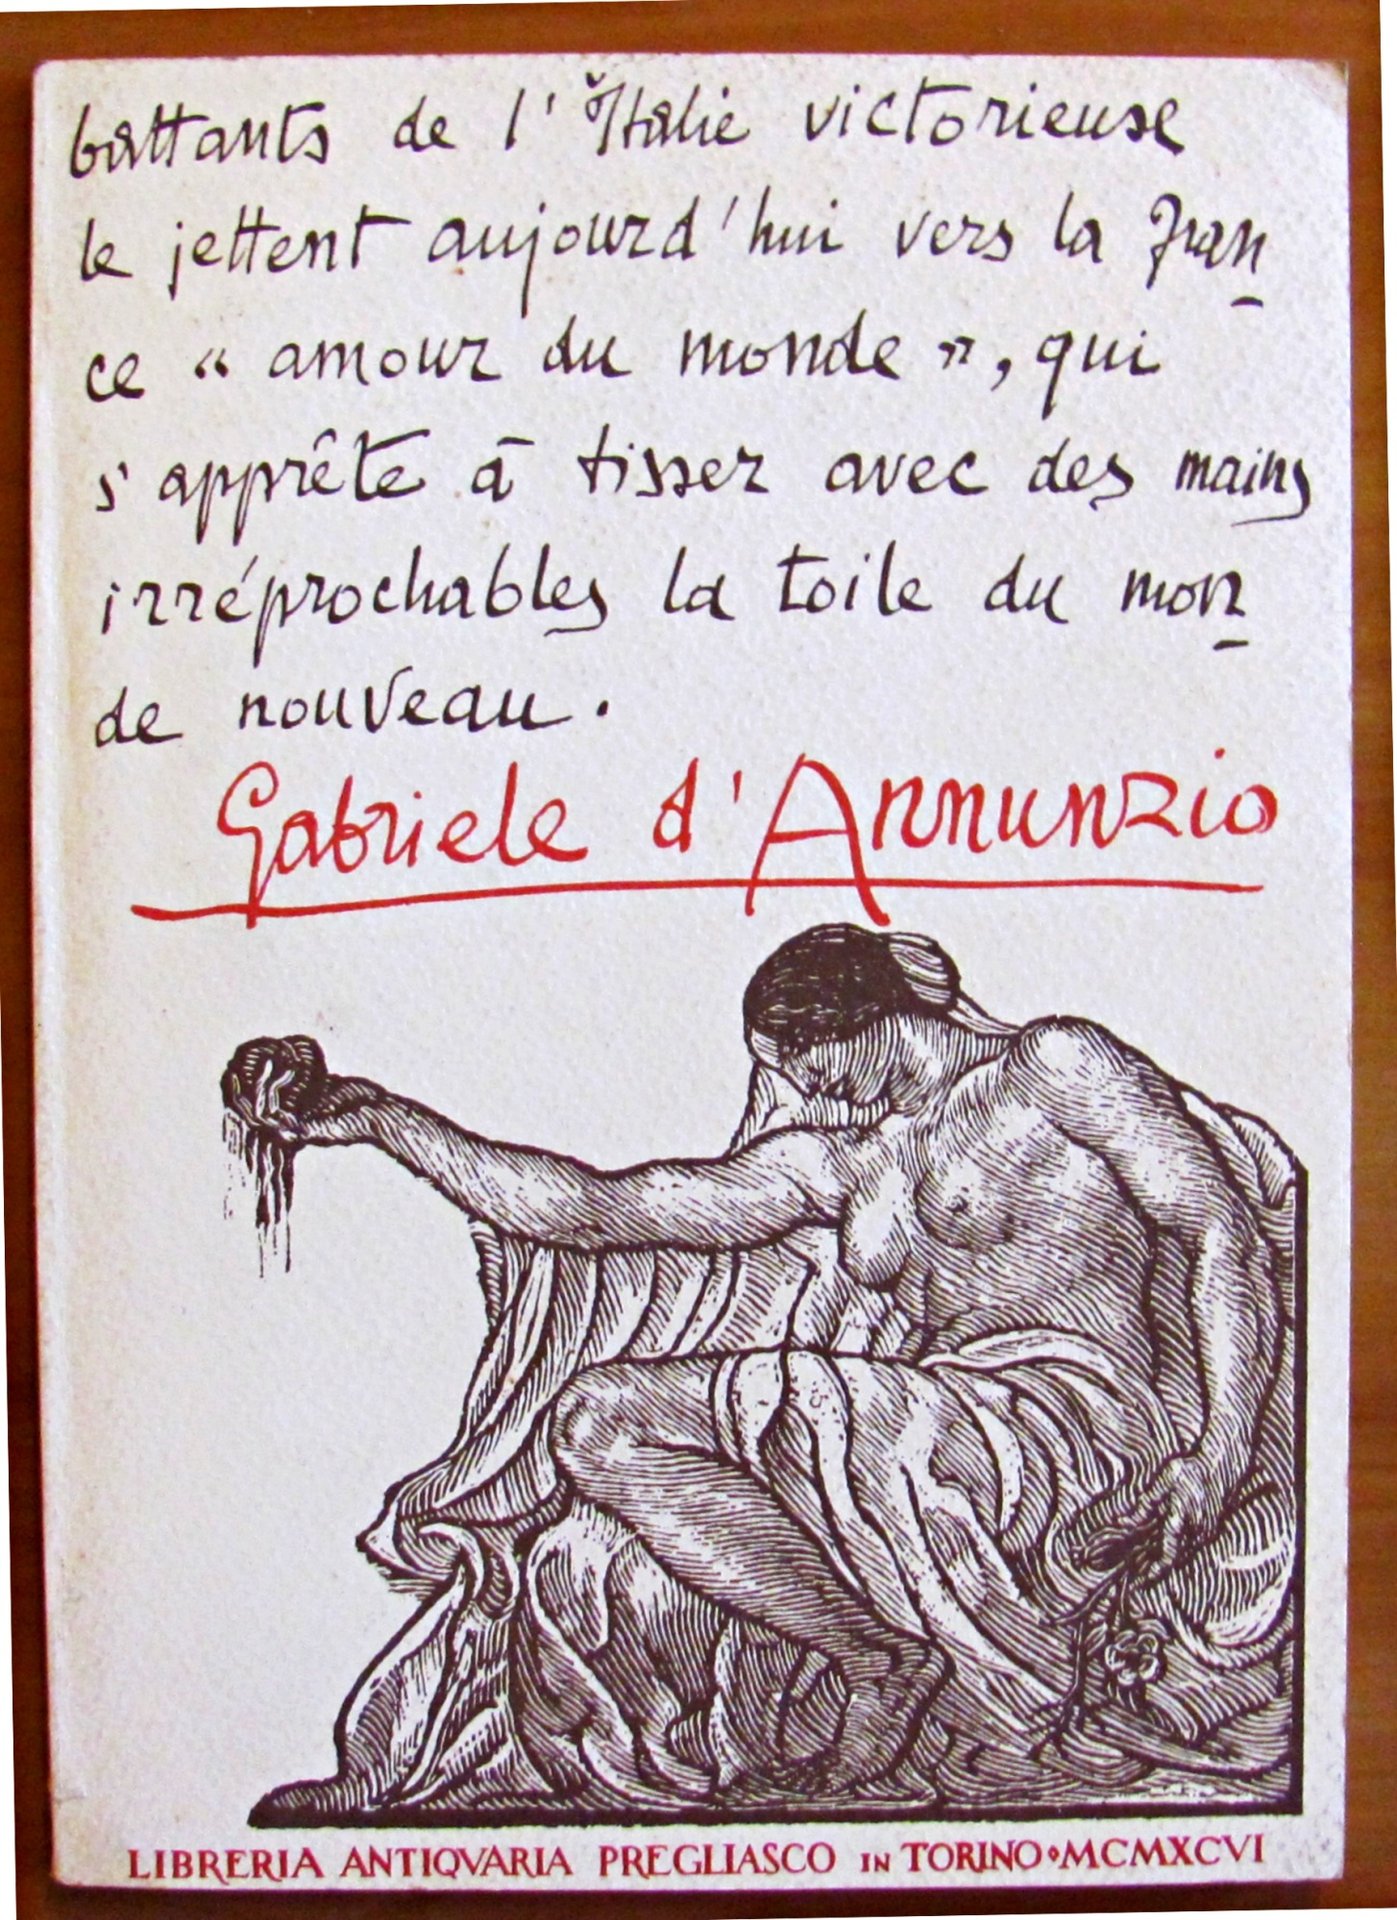 battants de l'Italie victorieuse
le jettent aujourd'hui vers la Fran
ce « amour du monde », qui
s'apprête à tisser avec des mains
irréprochables la toile du mon
de nouveau.
Gabriele d'Annunzio
LIBRERIA ANTIQVARIA PREGLIASCO IN TORINO • MCMXCVI